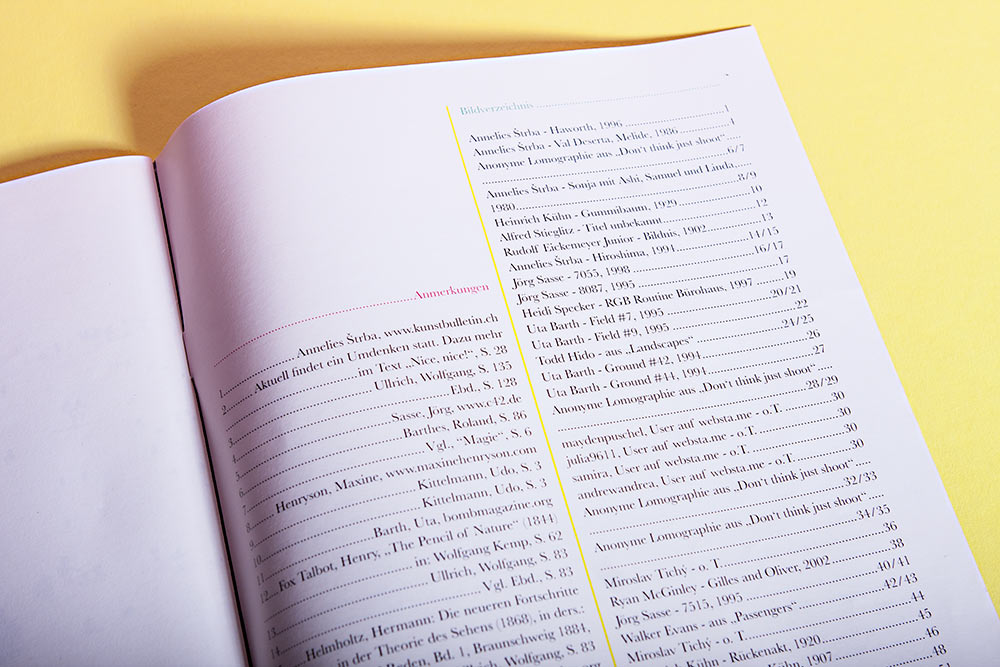 Anmerkungen
1 Annelies Štrba, www.kunstbulletin.ch
2 Aktuell findet ein Umdenken statt. Dazu mehr
im Text „Nice, nice!“, S. 28
3 Ullrich, Wolfgang, S. 135
4 Ebd., S. 128
5 Sasse, Jörg, www.c42.de
6 Barthes, Roland, S. 86
7 Vgl., “Magie”, S. 6
8 Henryson, Maxine, www.maxinehenryson.com
9 Kittelmann, Udo, S. 3
10 Kittelmann, Udo, S. 3
11 Barth, Uta, bombmagazine.org
12 Fox Talbot, Henry, „The Pencil of Nature“ (1844)
in: Wolfgang Kemp, S. 62
13 Ullrich, Wolfgang, S. 83
14 Vgl. Ebd., S. 83
Helmholtz, Hermann: Die neueren Fortschritte
in der Theorie des Sehens (1868), in ders.:
Reden, Bd. 1, Braunschweig 1884,
Ullrich, Wolfgang, S. 85
Bildverzeichnis
Annelies Štrba - Haworth, 1996 1
Annelies Štrba - Val Deserta, Melide, 1986 4
Anonyme Lomographie aus „Don't think just shoot“
6/7
Annelies Štrba - Sonja mit Ashi, Samuel und Linda,
1980 8/9
Heinrich Kühn - Gummibaum, 1929 10
Alfred Stieglitz - Titel unbekannt 12
Rudolf Eickemeyer Junior - Bildnis, 1902 13
Annelies Štrba - Hiroshima, 1994 14/15
Jörg Sasse - 7055, 1998 16/17
Jörg Sasse - 8087, 1995 17
Heidi Specker - RGB Routine Bürohaus, 1997 19
Uta Barth - Field #7, 1995 20/21
Uta Barth - Field #9, 1995 22
Todd Hido - aus „Landscapes“ 24/25
Uta Barth - Ground #42, 1994 26
Uta Barth - Ground #44, 1994 27
Anonyme Lomographie aus „Don't think just shoot“
28/29
maydenpuschel, User auf websta.me - o.T. 30
julia9611, User auf websta.me - o.T. 30
samira, User auf websta.me - o.T. 30
andrewandrea, User auf websta.me - o.T. 30
Anonyme Lomographie aus „Don't think just shoot“
32/33
Anonyme Lomographie aus „Don't think just shoot“
34/35
Miroslav Tichý - o. T. 36
Ryan McGinley - Gilles and Oliver, 2002 38
Jörg Sasse - 7515, 1995 40/41
Walker Evans - aus „Passengers“ 42/43
Miroslav Tichý - o. T. 44
Kühn - Rückenakt, 1920 45
Köln, 1907 46
48